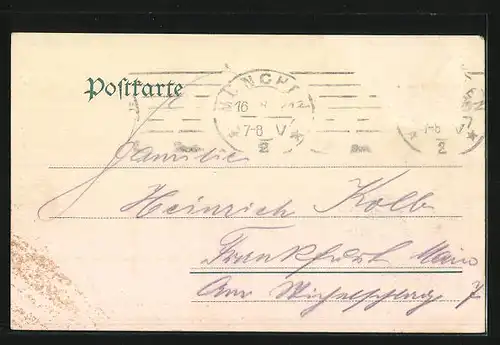 Postkarte
MÜNCHEN
16
7-8 V
2
7-8 V
2
Familie
Heinrich Kolb
Frankfurt Main
Am 7